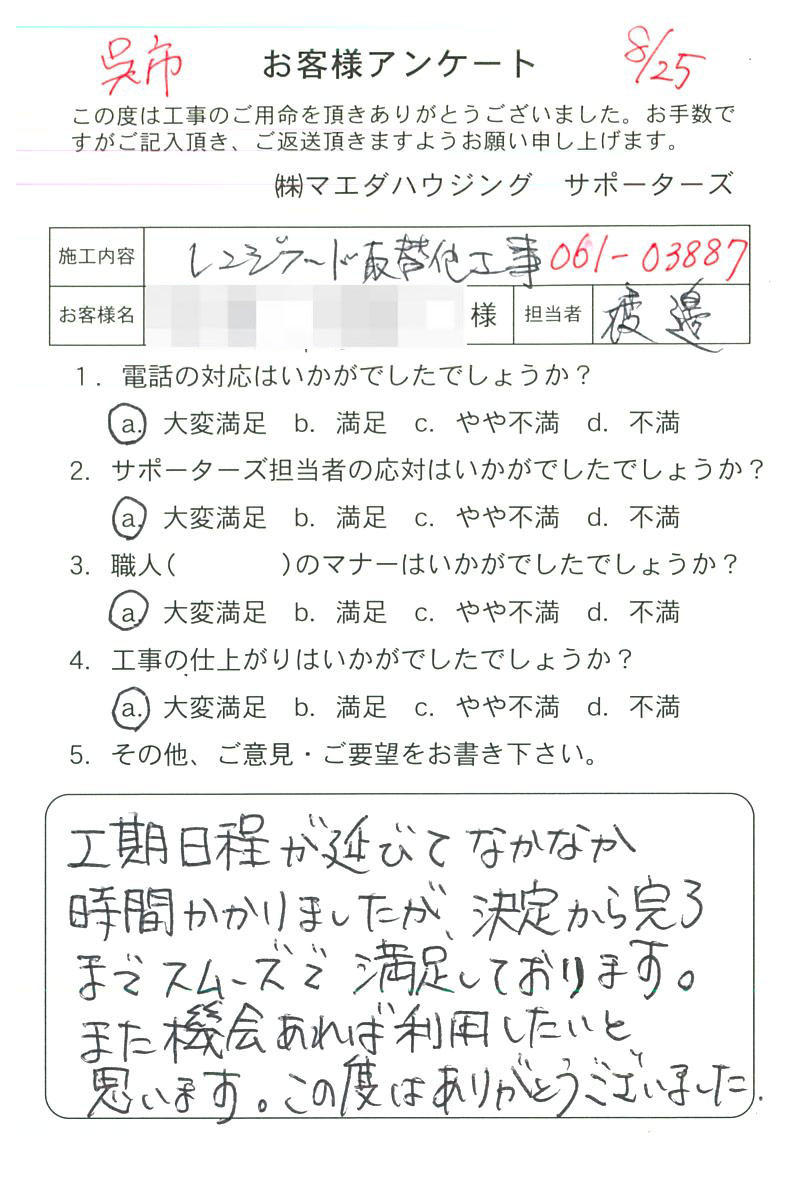 呉市 お客様アンケート 8/25
この度は工事のご用命を頂きありがとうございました。お手数で
すがご記入頂き、ご返送頂きますようお願い申し上げます。
㈱マエダハウジング サポーターズ
施工内容 レンジフード取替他工事 061-03887
お客様名 様 担当者 渡邊
1. 電話の対応はいかがでしたでしょうか？
a. 大変満足 b. 満足 c. やや不満 d. 不満
2. サポーターズ担当者の応対はいかがでしたでしょうか？
a. 大変満足 b. 満足 c. やや不満 d. 不満
3. 職人( )のマナーはいかがでしたでしょうか？
a. 大変満足 b. 満足 c. やや不満 d. 不満
4. 工事の仕上がりはいかがでしたでしょうか？
a. 大変満足 b. 満足 c. やや不満 d. 不満
5. その他、ご意見・ご要望をお書き下さい。
工期日程が延びてなかなか
時間かかりましたが、決定から完了
までスムーズで満足しております。
また機会あれば利用したいと
思います。この度はありがとうございました.